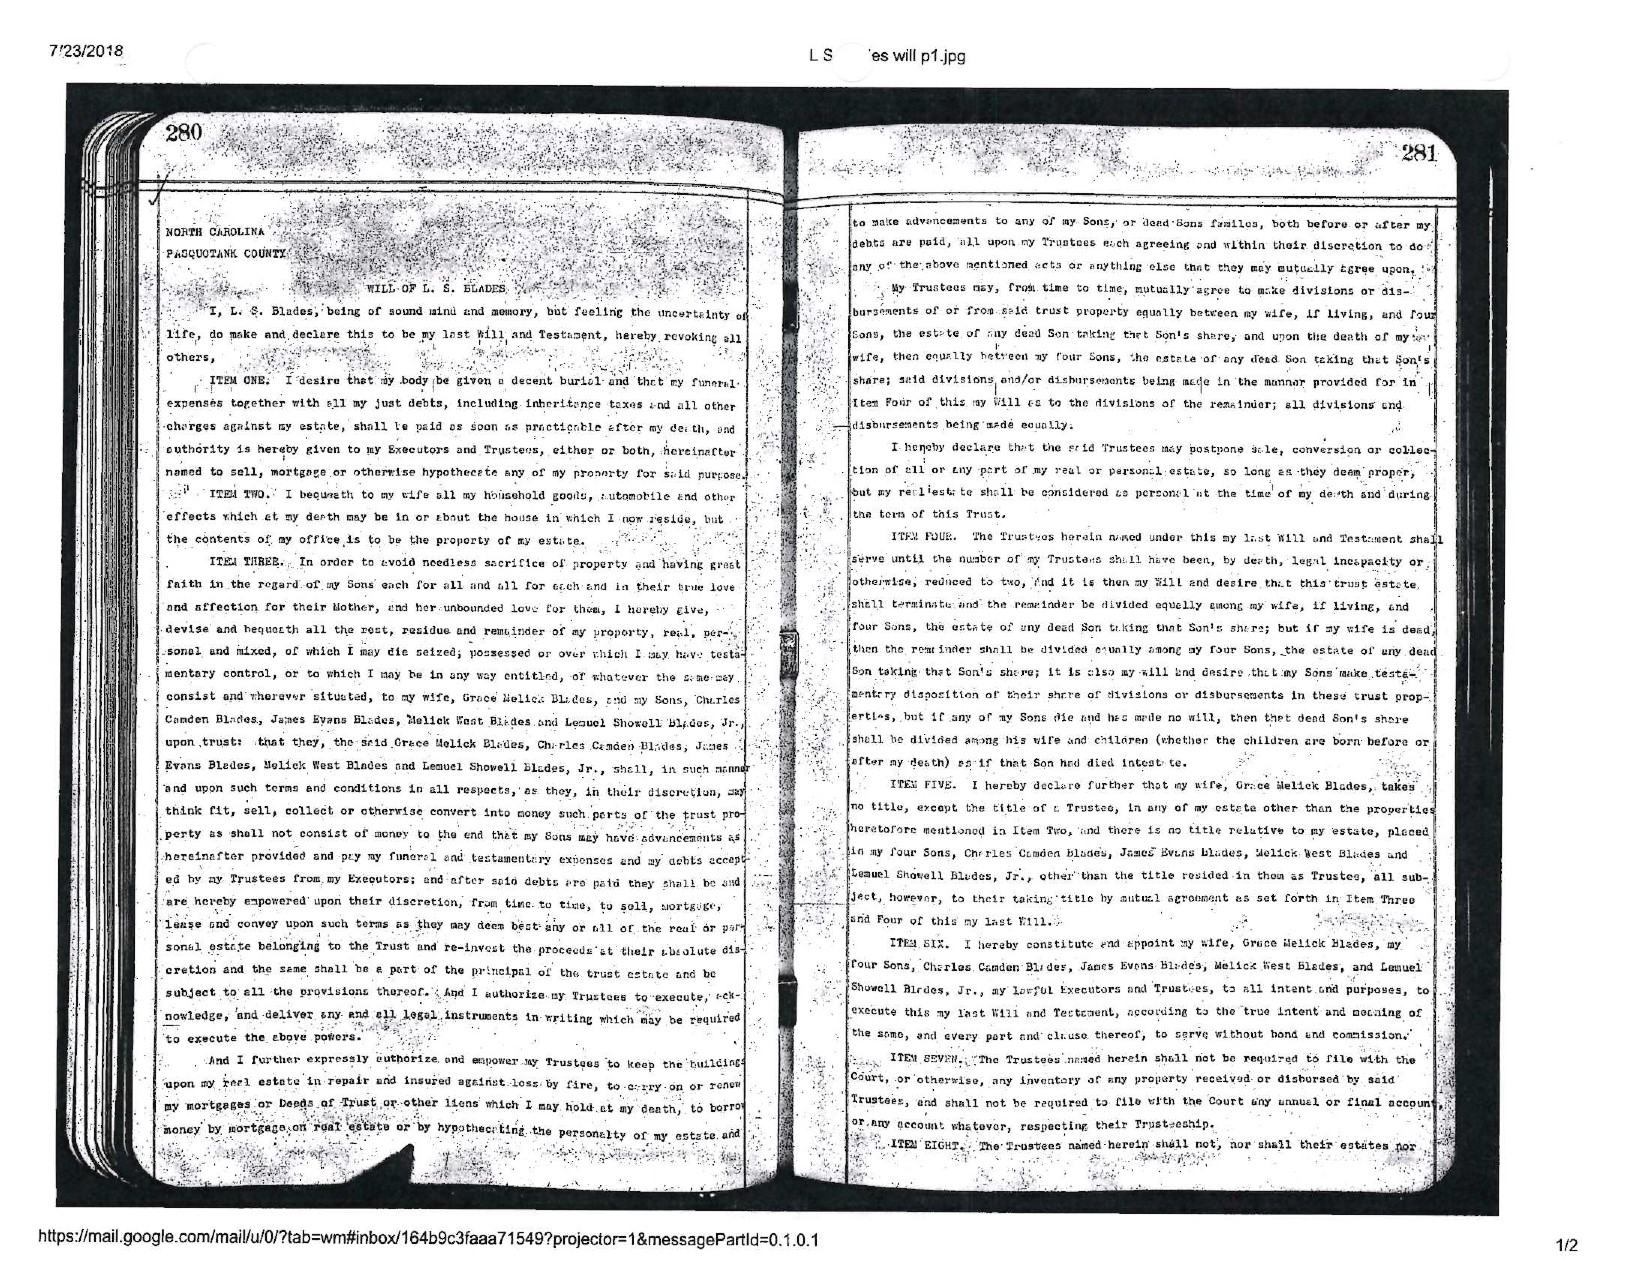 7/23/2018
L S es will p1.jpg
280
NORTH CAROLINA
PASQUOTANK COUNTY
WILL OF L. S. BLADES
I, L. S. Blades, being of sound mind and memory, but feeling the uncertainty of
life, do make and declare this to be my last Will and Testament, hereby revoking all
others,
ITEM ONE. I desire that my body be given a decent burial and that my funeral
expenses together with all my just debts, including inheritance taxes and all other
charges against my estate, shall be paid as soon as practicable after my death, and
authority is hereby given to my Executors and Trustees, either or both, hereinafter
named to sell, mortgage or otherwise hypothecate any of my property for said purpose.
ITEM TWO. I bequeath to my wife all my household goods, automobile and other
effects which at my death may be in or about the house in which I now reside, but
the contents of my office is to be the property of my estate.
ITEM THREE. In order to avoid needless sacrifice of property and having great
faith in the regard of my Sons each for all and all for each and in their true love
and affection for their Mother, and her unbounded love for them, I hereby give,
devise and bequeath all the rest, residue and remainder of my property, real, per-
sonal and mixed, of which I may die seized, possessed or over which I may have testa-
mentary control, or to which I may be in any way entitled, of whatever the same may
consist and wherever situated, to my wife, Grace Melick Blades, and my Sons, Charles
Camden Blades, James Evans Blades, Melick West Blades and Lemuel Showell Blades, Jr.,
upon trust: that they, the said Grace Melick Blades, Charles Camden Blades, James
Evans Blades, Melick West Blades and Lemuel Showell Blades, Jr., shall, in such manner
and upon such terms and conditions in all respects, as they, in their discretion, may
think fit, sell, collect or otherwise convert into money such parts of the trust pro-
perty as shall not consist of money to the end that my Sons may have advancements as
hereinafter provided and pay my funeral and testamentary expenses and my debts accept-
ed by my Trustees from my Executors; and after said debts are paid they shall be and
are hereby empowered upon their discretion, from time to time, to sell, mortgage,
lease and convey upon such terms as they may deem best any or all of the real or per-
sonal estate belonging to the Trust and re-invest the proceeds at their absolute dis-
cretion and the same shall be a part of the principal of the trust estate and be
subject to all the provisions thereof. And I authorize my Trustees to execute, ack-
nowledge, and deliver any and all legal instruments in writing which may be required
to execute the above powers.
And I further expressly authorize and empower my Trustees to keep the buildings
upon my real estate in repair and insured against loss by fire, to carry on or renew
my mortgages or Deeds of Trust or other liens which I may hold at my death, to borrow
money by mortgage on real estate or by hypothecating the personalty of my estate and
281
to make advancements to any of my Sons, or dead Sons familes, both before or after my
debts are paid, all upon my Trustees each agreeing and within their discretion to do
any of the above mentioned acts or anything else that they may mutually agree upon.
My Trustees may, from time to time, mutually agree to make divisions or dis-
bursements of or from said trust property equally between my wife, if living, and four
Sons, the estate of any dead Son taking that Son's share, and upon the death of my
wife, then equally between my four Sons, the estate of any dead Son taking that Son's
share; said divisions and/or disbursements being made in the manner provided for in
Item Four of this my Will as to the divisions of the remainder; all divisions and
disbursements being made equally.
I hereby declare that the said Trustees may postpone sale, conversion or collec-
tion of all or any part of my real or personal estate, so long as they deem proper,
but my real estate shall be considered as personal at the time of my death and during
the term of this Trust.
ITEM FOUR. The Trustees herein named under this my last Will and Testament shall
serve until the number of my Trustees shall have been, by death, legal incapacity or
otherwise, reduced to two, and it is then my Will and desire that this trust estate
shall terminate and the remainder be divided equally among my wife, if living, and
four Sons, the estate of any dead Son taking that Son's share; but if my wife is dead,
then the remainder shall be divided equally among my four Sons, the estate of any dead
Son taking that Son's share; it is also my will and desire that my Sons make testa-
mentary disposition of their share of divisions or disbursements in these trust prop-
erties, but if any of my Sons die and has made no will, then that dead Son's share
shall be divided among his wife and children (whether the children are born before or
after my death) as if that Son had died intestate.
ITEM FIVE. I hereby declare further that my wife, Grace Melick Blades, takes
no title, except the title of a Trustee, in any of my estate other than the properties
heretofore mentioned in Item Two, and there is no title relative to my estate, placed
in my four Sons, Charles Camden Blades, James Evans Blades, Melick West Blades and
Lemuel Showell Blades, Jr., other than the title resided in them as Trustee, all sub-
ject, however, to their taking title by mutual agreement as set forth in Item Three
and Four of this my last Will.
ITEM SIX. I hereby constitute and appoint my wife, Grace Melick Blades, my
four Sons, Charles Camden Blades, James Evans Blades, Melick West Blades, and Lemuel
Showell Blades, Jr., my lawful Executors and Trustees, to all intent and purposes, to
execute this my last Will and Testament, according to the true intent and meaning of
the same, and every part and clause thereof, to serve without bond and commission.
ITEM SEVEN. The Trustees named herein shall not be required to file with the
Court, or otherwise, any inventory of any property received or disbursed by said
Trustees, and shall not be required to file with the Court any annual or final account,
or any account whatever, respecting their Trusteeship.
ITEM EIGHT. The Trustees named herein shall not, nor shall their estates nor
https://mail.google.com/mail/u/0/?tab=wm#inbox/164b9c3faaa71549?projector=1&messagePartId=0.1.0.1
1/2